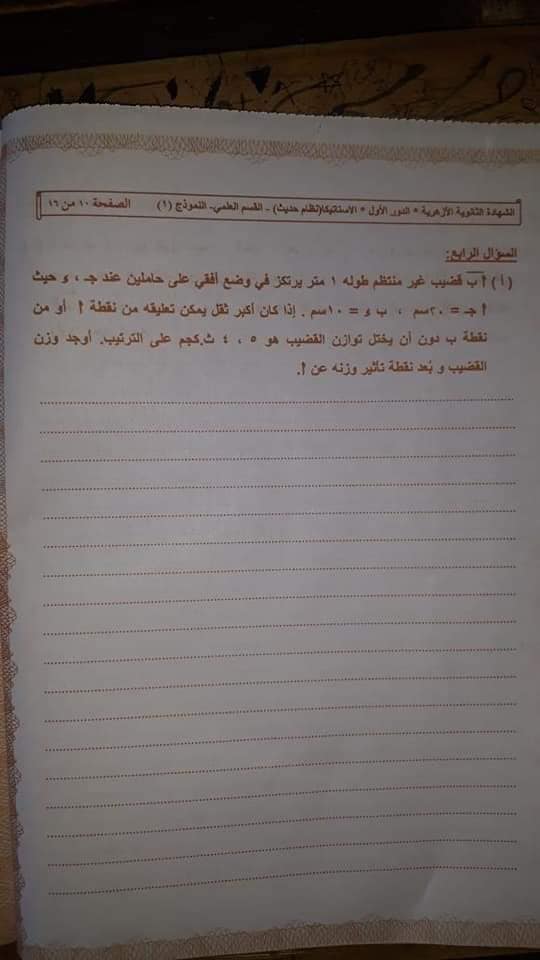 الشهادة الثانوية الأزهرية * الدور الأول * الاستاتيكا(نظام حديث) - القسم العلمي- النموذج (١) الصفحة ١٠ من ١٦
السؤال الرابع:
( أ ) أ ب قضيب غير منتظم طوله ١ متر يرتكز في وضع أفقي على حاملين عند جـ ، و حيث
أ جـ = ٢٠سم ، ب و = ١٠سم . إذا كان أكبر ثقل يمكن تعليقه من نقطة أ أو من
نقطة ب دون أن يختل توازن القضيب هو ٥ ، ٤ ث.كجم على الترتيب. أوجد وزن
القضيب و بُعد نقطة تأثير وزنه عن أ.